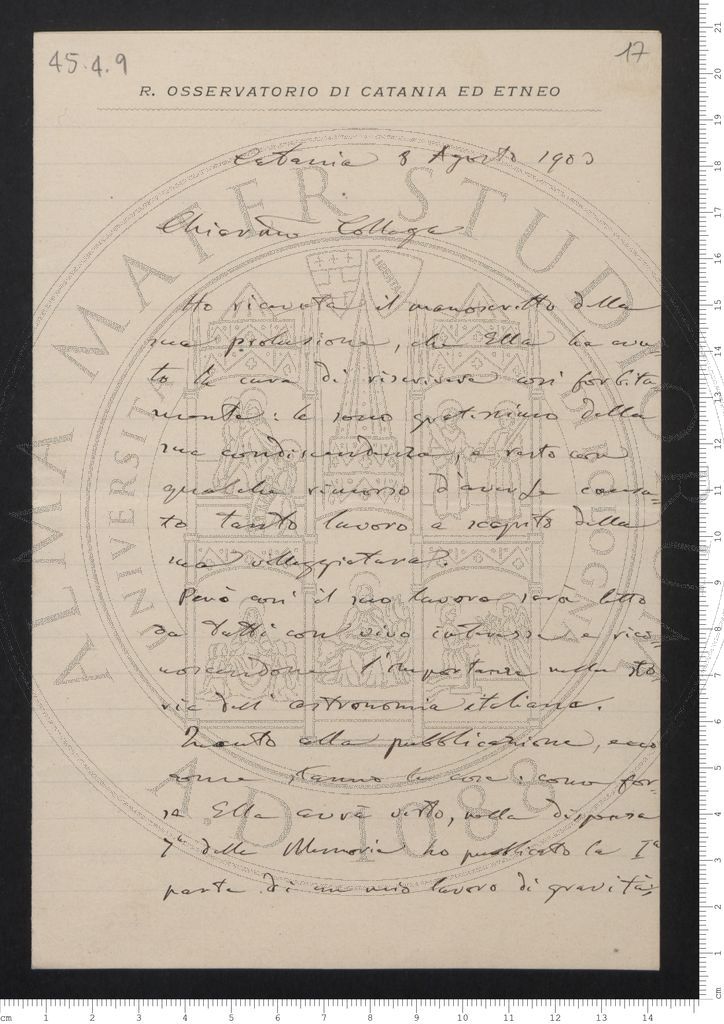 45.4.9
17
R. OSSERVATORIO DI CATANIA ED ETNEO
Catania 8 Agosto 1903
Chiar.mo Collega
Ho ricevuta il manoscritto della
sua prolusione, che Ella ha avu-
to la cura di riscrivere così forbita
mente: le sono gratissimo della
sua condiscendenza, e resto con
qualche rimorso d'averle causa-
to tanto lavoro a scapito della
sua villeggiatura.
Però così il suo lavoro sarà letto
da tutti con vivo interesse e rico-
noscendone l'importanza nella sto-
ria dell'astronomia italiana.
Quanto alla pubblicazione, ecco
come stanno le cose: come for-
se Ella avrà visto, nella dispensa
7a delle Memorie ho pubblicato la Ia
parte di un mio lavoro di gravità;
ALMA MATER STUDIORUM
UNIVERSITÀ DI BOLOGNA
LIBERTAS
A.D. 1088